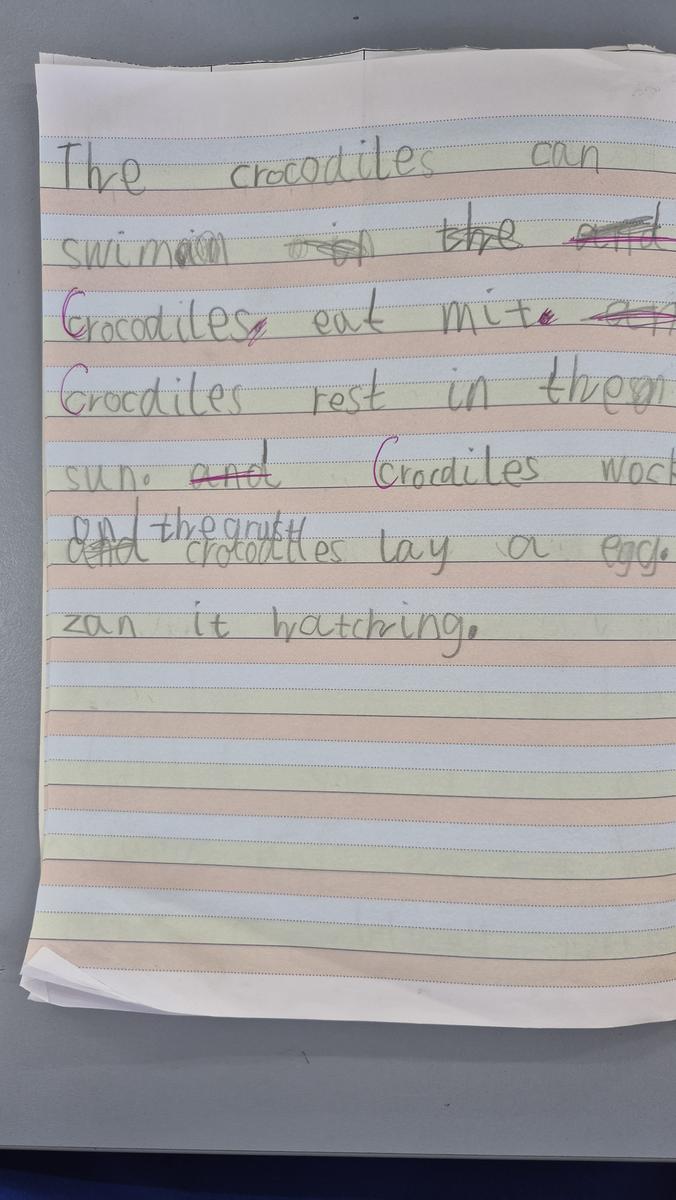 The crocodiles can
swim in the and
Crocodiles eat mit.
Crocdiles rest in the
sun. and Crocdiles wock
and the grustl
crocodiles lay a egg.
zan it hatching.